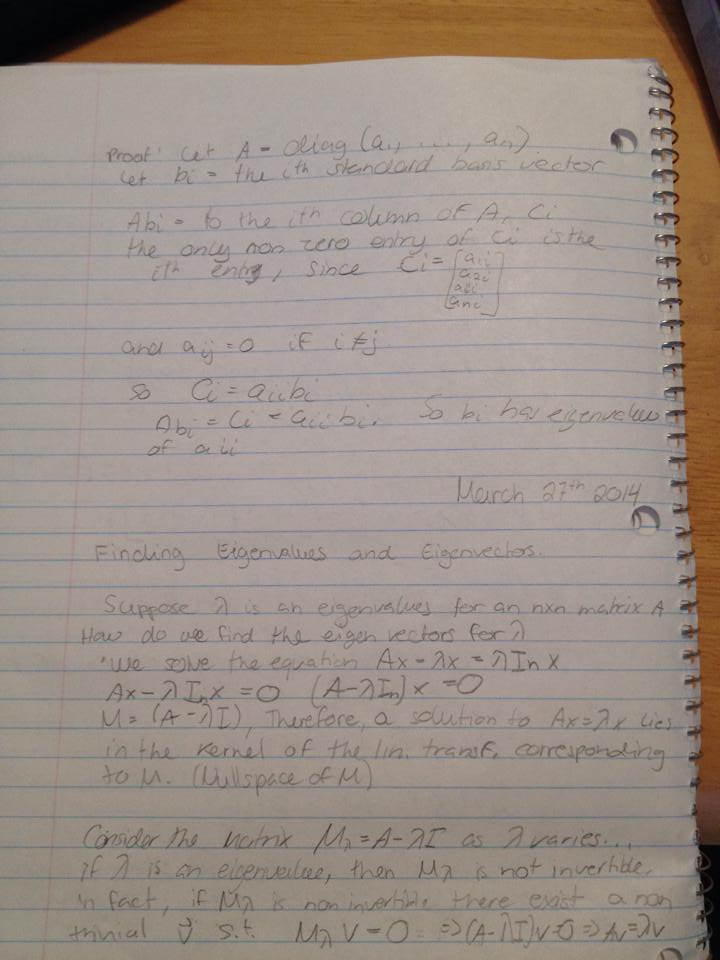 Proof: Let A = diag (a1, ..., an)
Let bi = the ith standard basis vector
Abi = to the ith column of A, Ci
the only non zero entry of Ci is the
ith entry, since Ci = [a1i
a2i
a3i
ani]
and aij = 0 if i≠j
so Ci = aiibi
Abi = Ci = aii bi. So bi has eigenvalues
of aii
March 27th 2014
Finding Eigenvalues and Eigenvectors.
Suppose λ is an eigenvalues for an nxn matrix A
How do we find the eigen vectors for λ
·We solve the equation Ax = λx = λInx
Ax - λInx = 0 (A-λIn)x = 0
M = (A-λI), Therefore, a solution to Ax=λx lies
in the kernel of the lin. transf. corresponding
to M. (Nullspace of M)
Consider the matrix Mλ = A-λI as λ varies...
if λ is an eigenvalue, then Mλ is not invertible,
in fact, if Mλ is non invertible there exist a non
trivial v s.t. Mλ V = 0 => (A-λI)v=0 => Av=λv